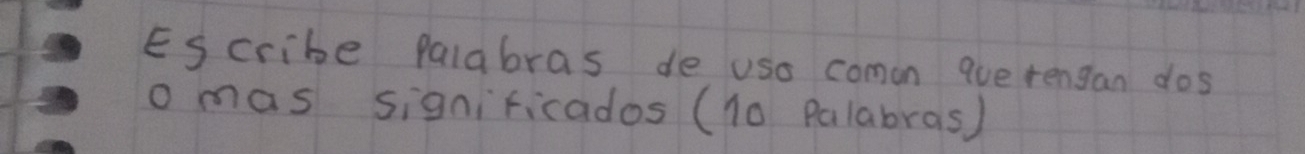 Escribe Palabras de uso comun que tengan dos
o mas significados (10 Palabras)